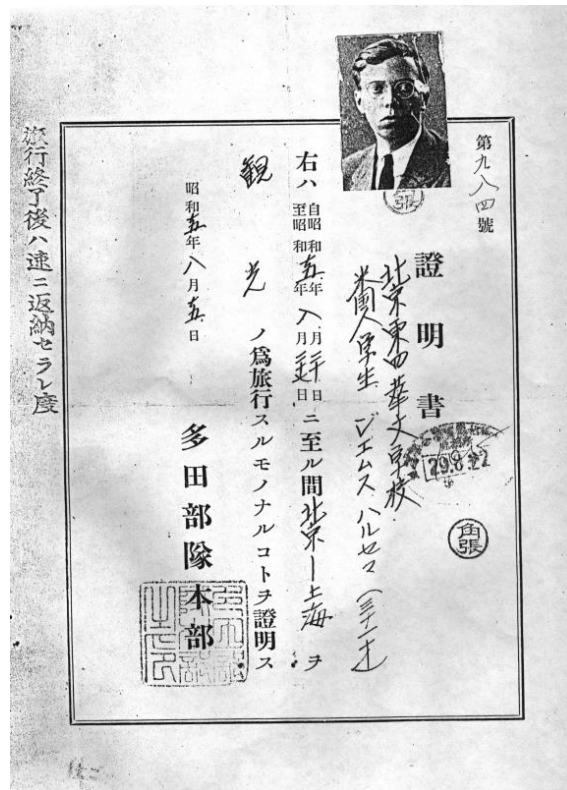 第九八四號
張
證明書
北京東四華文学校
米國人学生 ジエムス ハルセマ
角張
右ハ自昭和五年八月
至昭和 年 月 日ニ至ル間北京ー上海ヲ
観光ノ爲旅行スルモノナルコトヲ證明ス
昭和五年八月五日
多田部隊本部
旅行終了後ハ速ニ返納セラレ度